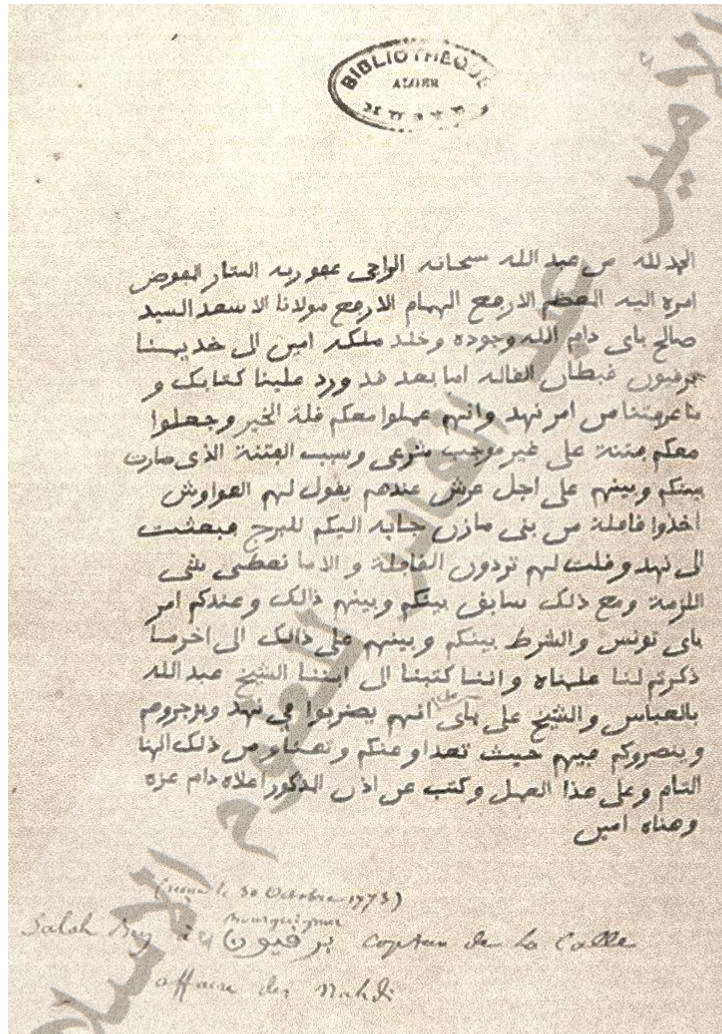 BIBLIOTHEQUE
ALGER
الحمد لله من عبد الله سبحانه الراجى عفو ربه الستار المفوض
امره اليه المعظم الارفع الهمام الارفع مولانا الاسعد السيد
صالح باى دام الله وجوده وخلد ملكه امين الى خديمنا
برفيون فبطان الفاله اما بعد فد ورد علينا كتابك و
ما عرفتنا من امر نهد وانهم عملوا معكم فلة الخير وجعلوا
معكم فتنة على غير موجب شرعى وسبب الفتنة الذى صارت
بينكم وبينهم على اجل عرش عندهم يفول لهم العواوش
اخذوا فافلة من بنى مازن جايه اليكم للبرج فبعثت
الى نهد وفلت لهم تردون الفافلة و الا ما نعطى شى
اللزمة ومع ذلك سابق بينكم وبينهم ذالك وعندكم امر
باى تونس والشرط بينكم وبينهم على ذالك الى اخر ما
ذكرتم لنا علمناه واننا كتبنا الى ابننا الشيخ عبد الله
بالعباس والشيخ على باى انهم يضربوا فى نهد
وينصروكم فيهم حيث تعداو عنكم من ذلك الهنا
التام وعلى هذا العمل وكتب عن اذن المذكور اعلاه دام عزه
وهناه امين
(reçue le 30 Octobre 1773)
Bourguignon
Salah Bey à برفيون Capitan de La Calle
affaire des Nahdi
الامير عبد القادر للعلوم الاسلا